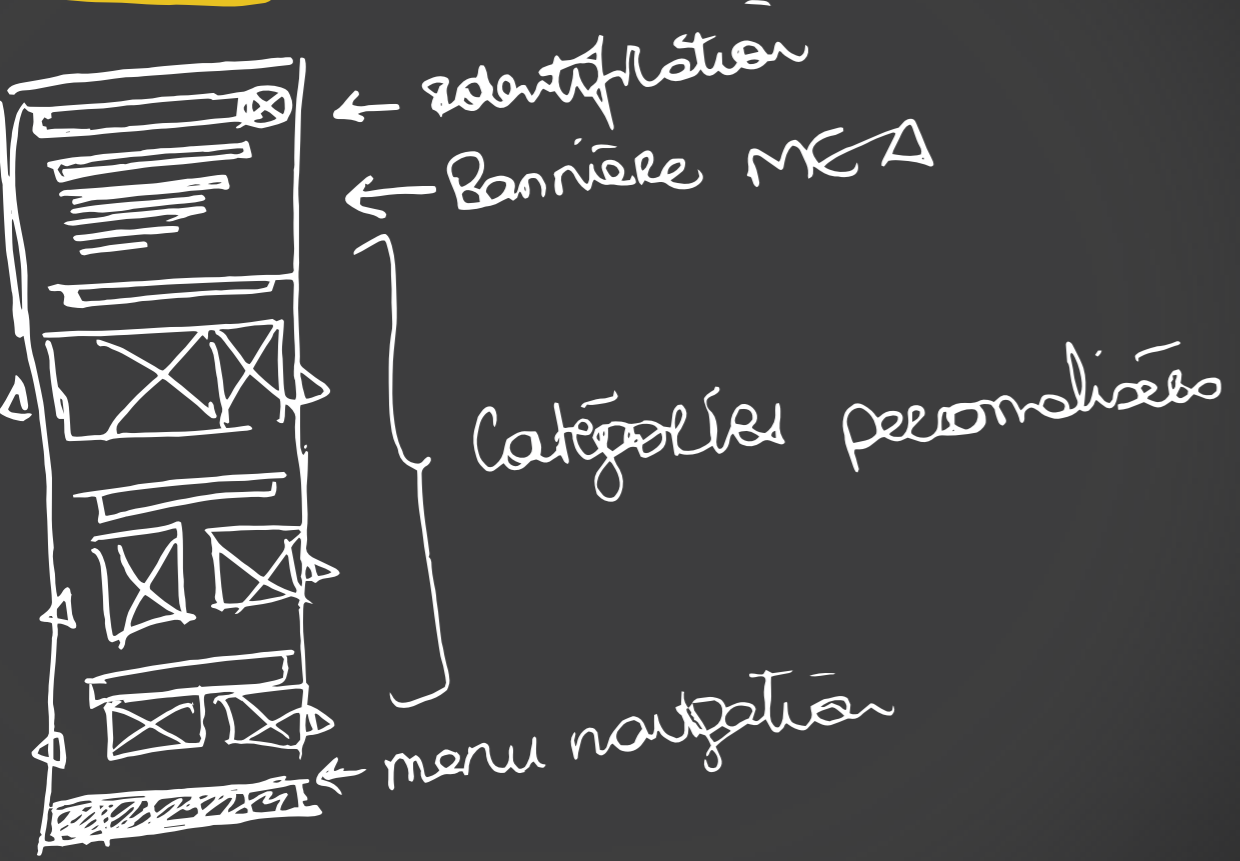 Identification
Bannière MEA
Catégories personnalisées
menu navigation